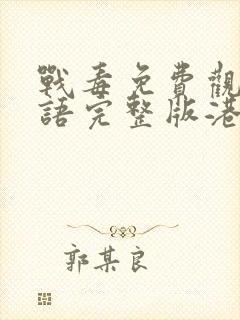 戰毒免費觀
語完整版港
郭某良